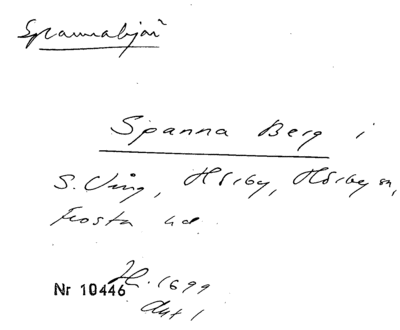 Spannabjär
Spanna Berg i
S. Ving, Hörby, Hörby sn,
Frosta hd.
Nr 10446
1699